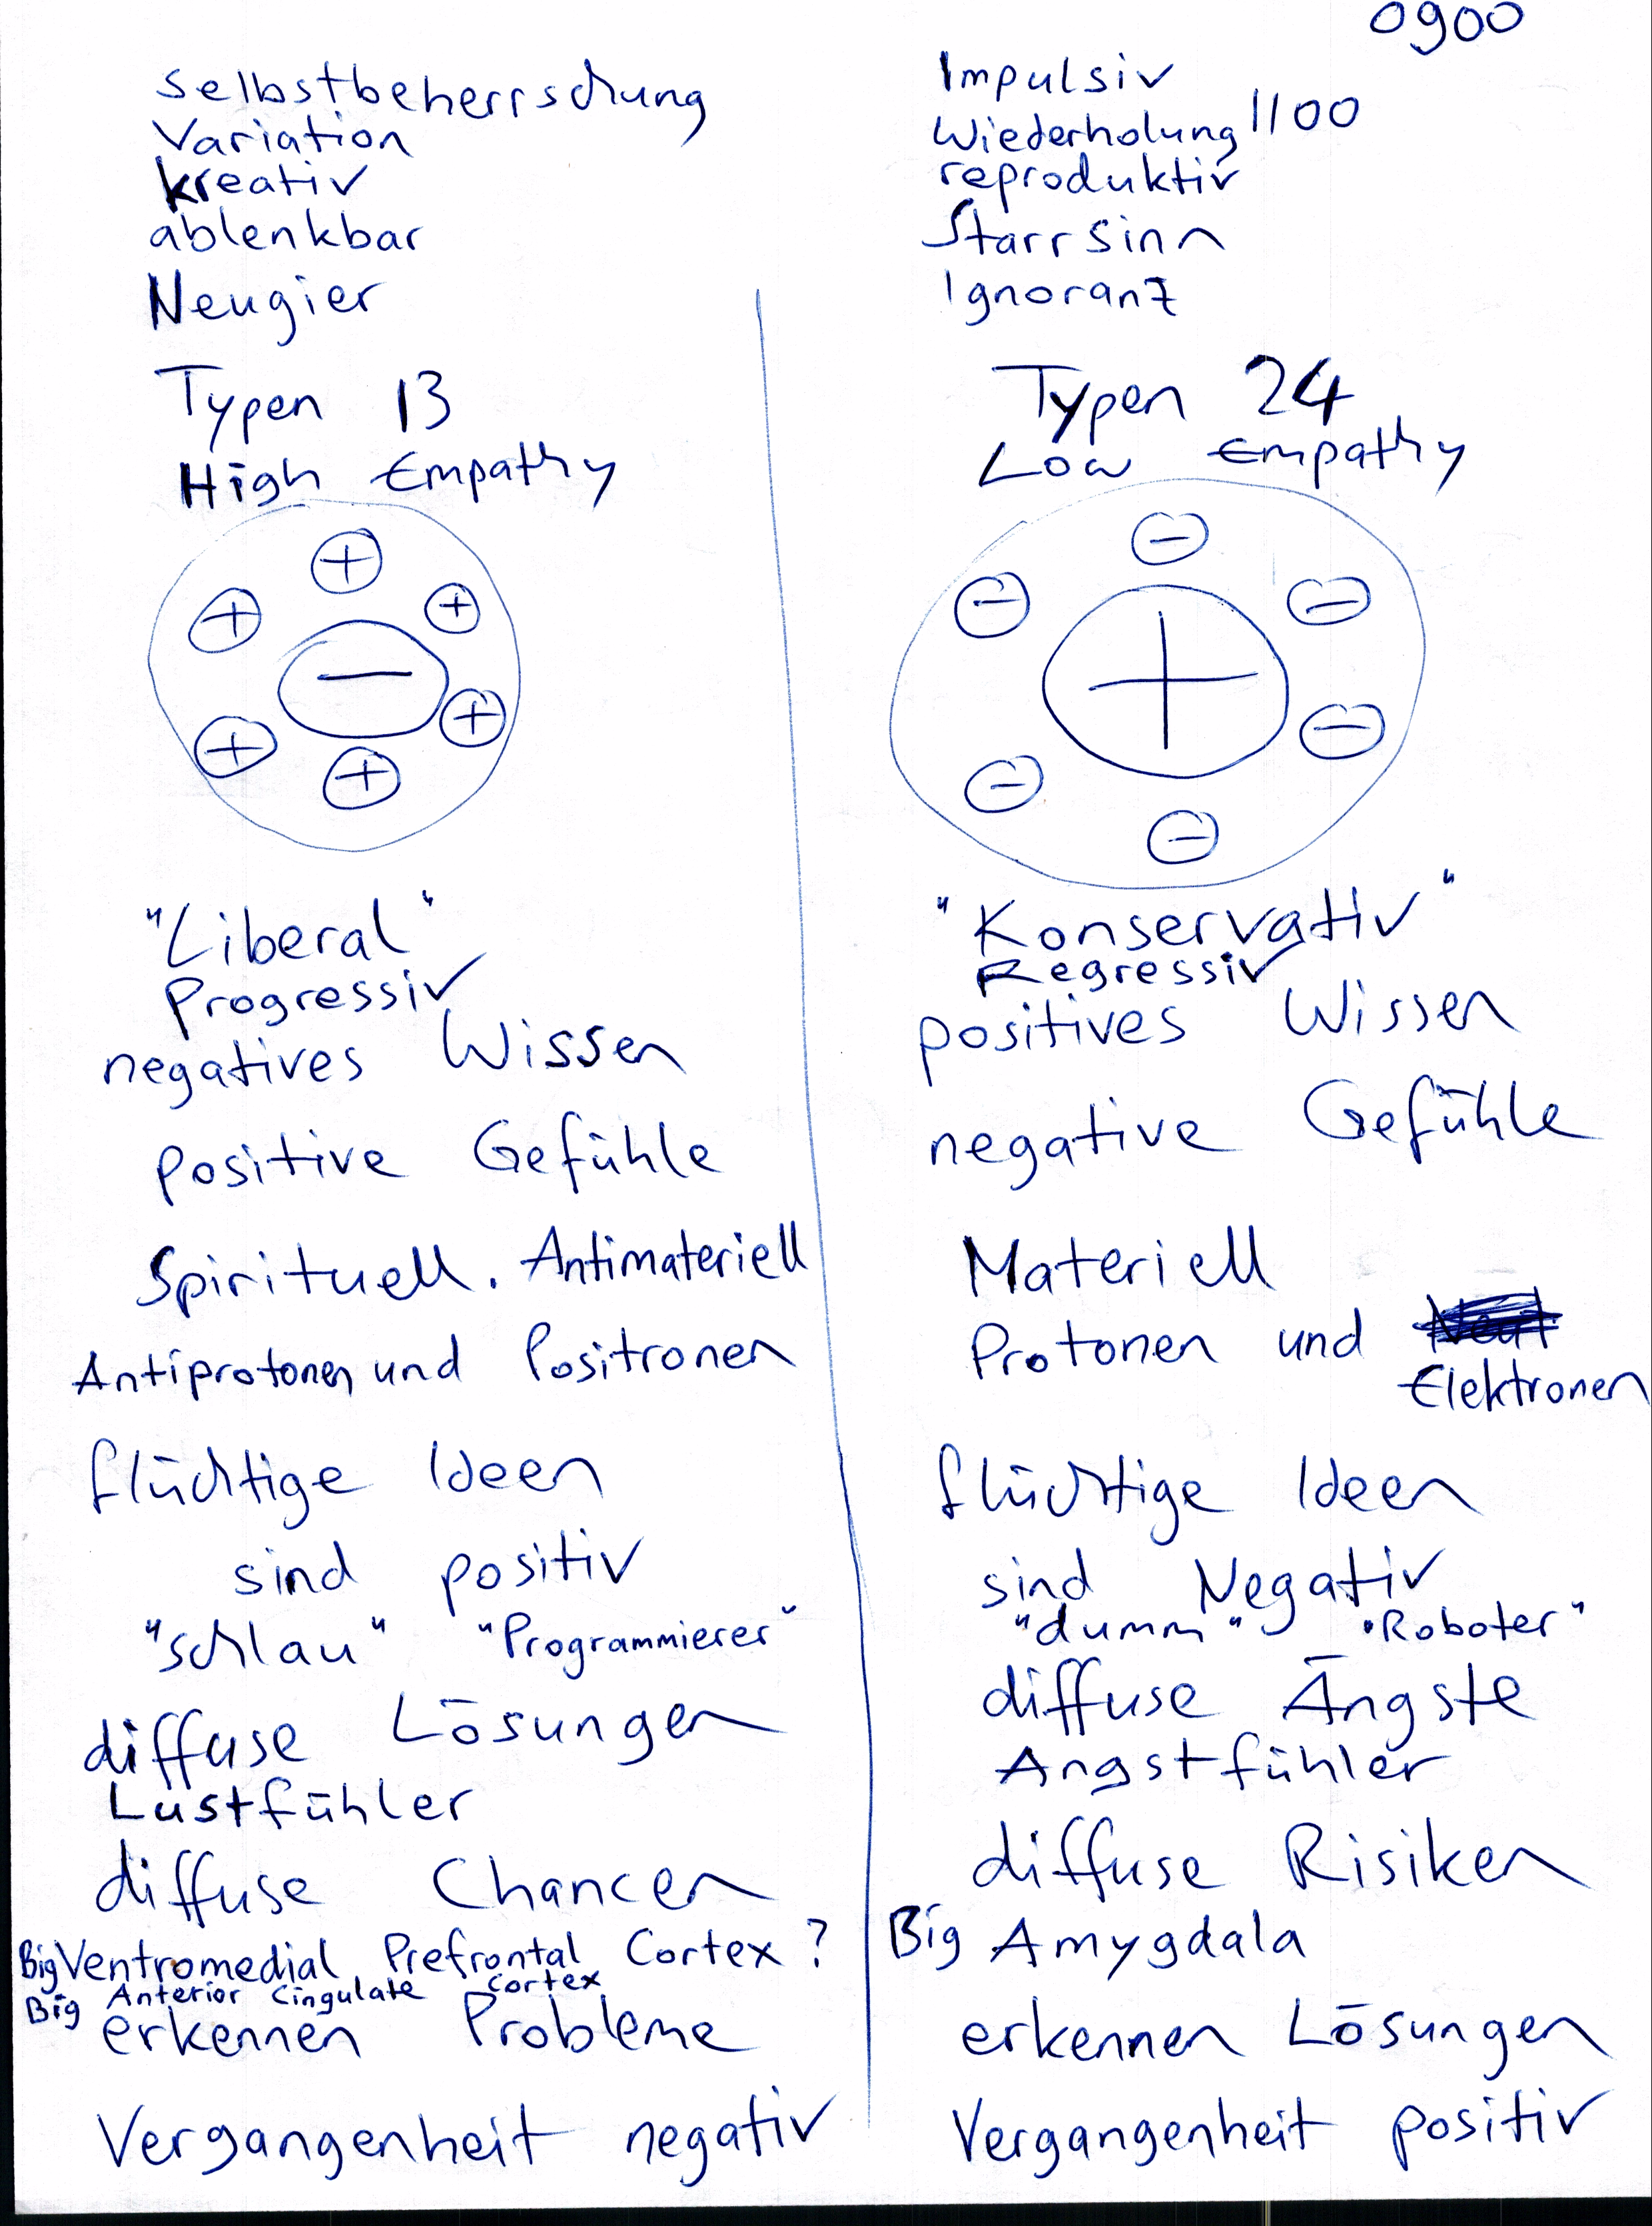 0900
Selbstbeherrschung
Variation
kreativ
ablenkbar
Neugier
Typen 13
High Empathy
+
+
+
−
+
+
+
"Liberal"
Progressiv
negatives Wissen
positive Gefühle
Spirituell. Antimateriell
Antiprotonen und Positronen
flüchtige Ideen
sind positiv
"schlau" "Programmierer"
diffuse Lösungen
Lustfühler
diffuse Chancen
Big Ventromedial Prefrontal Cortex ?
Big Anterior Cingulate Cortex
erkennen Probleme
Vergangenheit negativ
Impulsiv
Wiederholung 1100
reproduktiv
Starrsinn
Ignoranz
Typen 24
Low Empathy
−
−
−
+
−
−
−
"Konservativ"
Regressiv
positives Wissen
negative Gefühle
Materiell
Protonen und
Elektronen
flüchtige Ideen
sind Negativ
"dumm" "Roboter"
diffuse Ängste
Angstfühler
diffuse Risiken
Big Amygdala
erkennen Lösungen
Vergangenheit positiv